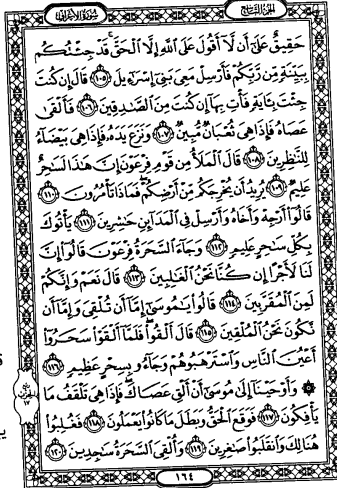 الجزء التاسع
سورة الأعراف
حَقِيقٌ عَلَىٰٓ أَن لَّآ أَقُولَ عَلَى ٱللَّهِ إِلَّا ٱلْحَقَّ ۚ قَدْ جِئْتُكُم
بِبَيِّنَةٍ مِّن رَّبِّكُمْ فَأَرْسِلْ مَعِىَ بَنِىٓ إِسْرَٰٓءِيلَ ١٠٥ قَالَ إِن كُنتَ
جِئْتَ بِـَٔايَةٍ فَأْتِ بِهَآ إِن كُنتَ مِنَ ٱلصَّـٰدِقِينَ ١٠٦ فَأَلْقَىٰ
عَصَاهُ فَإِذَا هِىَ ثُعْبَانٌ مُّبِينٌ ١٠٧ وَنَزَعَ يَدَهُۥ فَإِذَا هِىَ بَيْضَآءُ
لِلنَّـٰظِرِينَ ١٠٨ قَالَ ٱلْمَلَأُ مِن قَوْمِ فِرْعَوْنَ إِنَّ هَـٰذَا لَسَـٰحِرٌ
عَلِيمٌ ١٠٩ يُرِيدُ أَن يُخْرِجَكُم مِّنْ أَرْضِكُمْ ۖ فَمَاذَا تَأْمُرُونَ ١١٠
قَالُوٓا۟ أَرْجِهْ وَأَخَاهُ وَأَرْسِلْ فِى ٱلْمَدَآئِنِ حَـٰشِرِينَ ١١١ يَأْتُوكَ
بِكُلِّ سَـٰحِرٍ عَلِيمٍ ١١٢ وَجَآءَ ٱلسَّحَرَةُ فِرْعَوْنَ قَالُوٓا۟ إِنَّ
لَنَا لَأَجْرًا إِن كُنَّا نَحْنُ ٱلْغَـٰلِبِينَ ١١٣ قَالَ نَعَمْ وَإِنَّكُمْ
لَمِنَ ٱلْمُقَرَّبِينَ ١١٤ قَالُوا۟ يَـٰمُوسَىٰٓ إِمَّآ أَن تُلْقِىَ وَإِمَّآ أَن
نَّكُونَ نَحْنُ ٱلْمُلْقِينَ ١١٥ قَالَ أَلْقُوا۟ ۖ فَلَمَّآ أَلْقَوْا۟ سَحَرُوٓا۟
أَعْيُنَ ٱلنَّاسِ وَٱسْتَرْهَبُوهُمْ وَجَآءُو بِسِحْرٍ عَظِيمٍ ١١٦
۞ وَأَوْحَيْنَآ إِلَىٰ مُوسَىٰٓ أَنْ أَلْقِ عَصَاكَ ۖ فَإِذَا هِىَ تَلْقَفُ مَا
يَأْفِكُونَ ١١٧ فَوَقَعَ ٱلْحَقُّ وَبَطَلَ مَا كَانُوا۟ يَعْمَلُونَ ١١٨ فَغُلِبُوا۟
هُنَالِكَ وَٱنقَلَبُوا۟ صَـٰغِرِينَ ١١٩ وَأُلْقِىَ ٱلسَّحَرَةُ سَـٰجِدِينَ ١٢٠
١٦٤